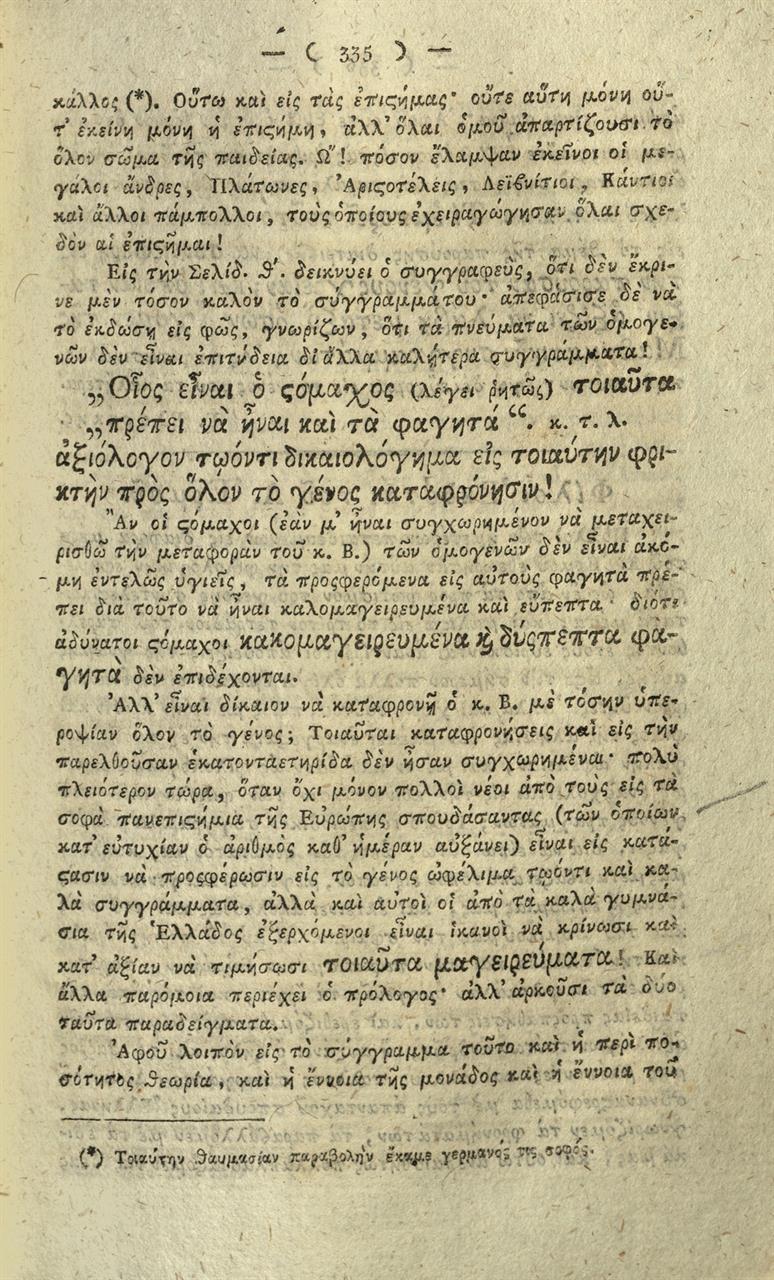 — ( 335 ) —
κάλλος (*). Οὕτω καὶ εἰς τὰς ἐπιϛήμας· οὔτε αὕτη μόνη οὔ-
τ' ἐκείνη μόνη ἡ ἐπιϛήμη, ἀλλ' ὅλαι ὁμοῦ ἀπαρτίζουσι τὸ
ὅλον σῶμα τῆς παιδείας. Ὢ! πόσον ἔλαμψαν ἐκεῖνοι οἱ με-
γάλοι ἄνδρες, Πλάτωνες, Ἀριϛοτέλεις, Λεϊβνίτιοι, Κάντιοι
καὶ ἄλλοι πάμπολλοι, τοὺς ὁποίους ἐχειραγώγησαν ὅλαι σχε-
δὸν αἱ ἐπιϛῆμαι!
Εἰς τὴν Σελίδ. θ'. δεικνύει ὁ συγγραφεὺς, ὅτι δὲν ἔκρι-
νε μὲν τόσον καλὸν τὸ σύγγραμμάτου· ἀπεφάσισε δὲ νὰ
τὸ ἐκδώσῃ εἰς φῶς, γνωρίζων, ὅτι τὰ πνεύματα τῶν ὁμογε-
νῶν δὲν εἶναι ἐπιτήδεια δι' ἄλλα καλήτερα συγγράμματα!
„Οἷος εἶναι ὁ ϛόμαχος (λέγει ῥητῶς) τοιαῦτα
„πρέπει νὰ ἦναι καὶ τὰ φαγητά“. κ. τ. λ.
ἀξιόλογον τῳόντι δικαιολόγημα εἰς τοιαύτην φρι-
κτὴν πρὸς ὅλον τὸ γένος καταφρόνησιν!
Ἂν οἱ ϛόμαχοι (ἐὰν μ' ἦναι συγχωρημένον νὰ μεταχει-
ρισθῶ τὴν μεταφορὰν τοῦ κ. Β.) τῶν ὁμογενῶν δὲν εἶναι ἀκό-
μη ἐντελῶς ὑγιεῖς, τὰ προσφερόμενα εἰς αὐτοὺς φαγητὰ πρέ-
πει διὰ τοῦτο νὰ ἦναι καλομαγειρευμένα καὶ εὔπεπτα· διότι
ἀδύνατοι ϛόμαχοι κακομαγειρευμένα ϗ δύσπεπτα φα-
γητὰ δὲν ἐπιδέχονται.
Ἀλλ' εἶναι δίκαιον νὰ καταφρονῇ ὁ κ. Β. μὲ τόσην ὑπε-
ροψίαν ὅλον τὸ γένος; Τοιαῦται καταφρονήσεις καὶ εἰς τὴν
παρελθοῦσαν ἑκατονταετηρίδα δὲν ἦσαν συγχωρημέναι· πολὺ
πλειότερον τώρα, ὅταν ὄχι μόνον πολλοὶ νέοι ἀπὸ τοὺς εἰς τὰ
σοφὰ πανεπιϛήμια τῆς Εὐρώπης σπουδάσαντας (τῶν ὁποίων
κατ' εὐτυχίαν ὁ ἀριθμὸς καθ' ἡμέραν αὐξάνει) εἶναι εἰς κατά-
ϛασιν νὰ προςφέρωσιν εἰς τὸ γένος ὠφέλιμα τῳόντι καὶ κα-
λὰ συγγράμματα, ἀλλὰ καὶ αὐτοὶ οἱ ἀπὸ τα καλὰ γυμνά-
σια τῆς Ἑλλάδος ἐξερχόμενοι εἶναι ἱκανοὶ νὰ κρίνωσι καὶ
κατ' ἀξίαν νὰ τιμήσωσι τοιαῦτα μαγειρεύματα! Καὶ
ἄλλα παρόμοια περιέχει ὁ πρόλογος· ἀλλ' ἀρκοῦσι τὰ δύο
ταῦτα παραδείγματα.
Ἀφοῦ λοιπὸν εἰς τὸ σύγγραμμα τοῦτο καὶ ἡ περὶ πο-
σότητος θεωρία, καὶ ἡ ἔννοια τῆς μονάδος καὶ ἡ ἔννοια τοῦ
(*) Τοιαύτην θαυμασίαν παραβολὴν ἔκαμε γερμανός τις σοφός.